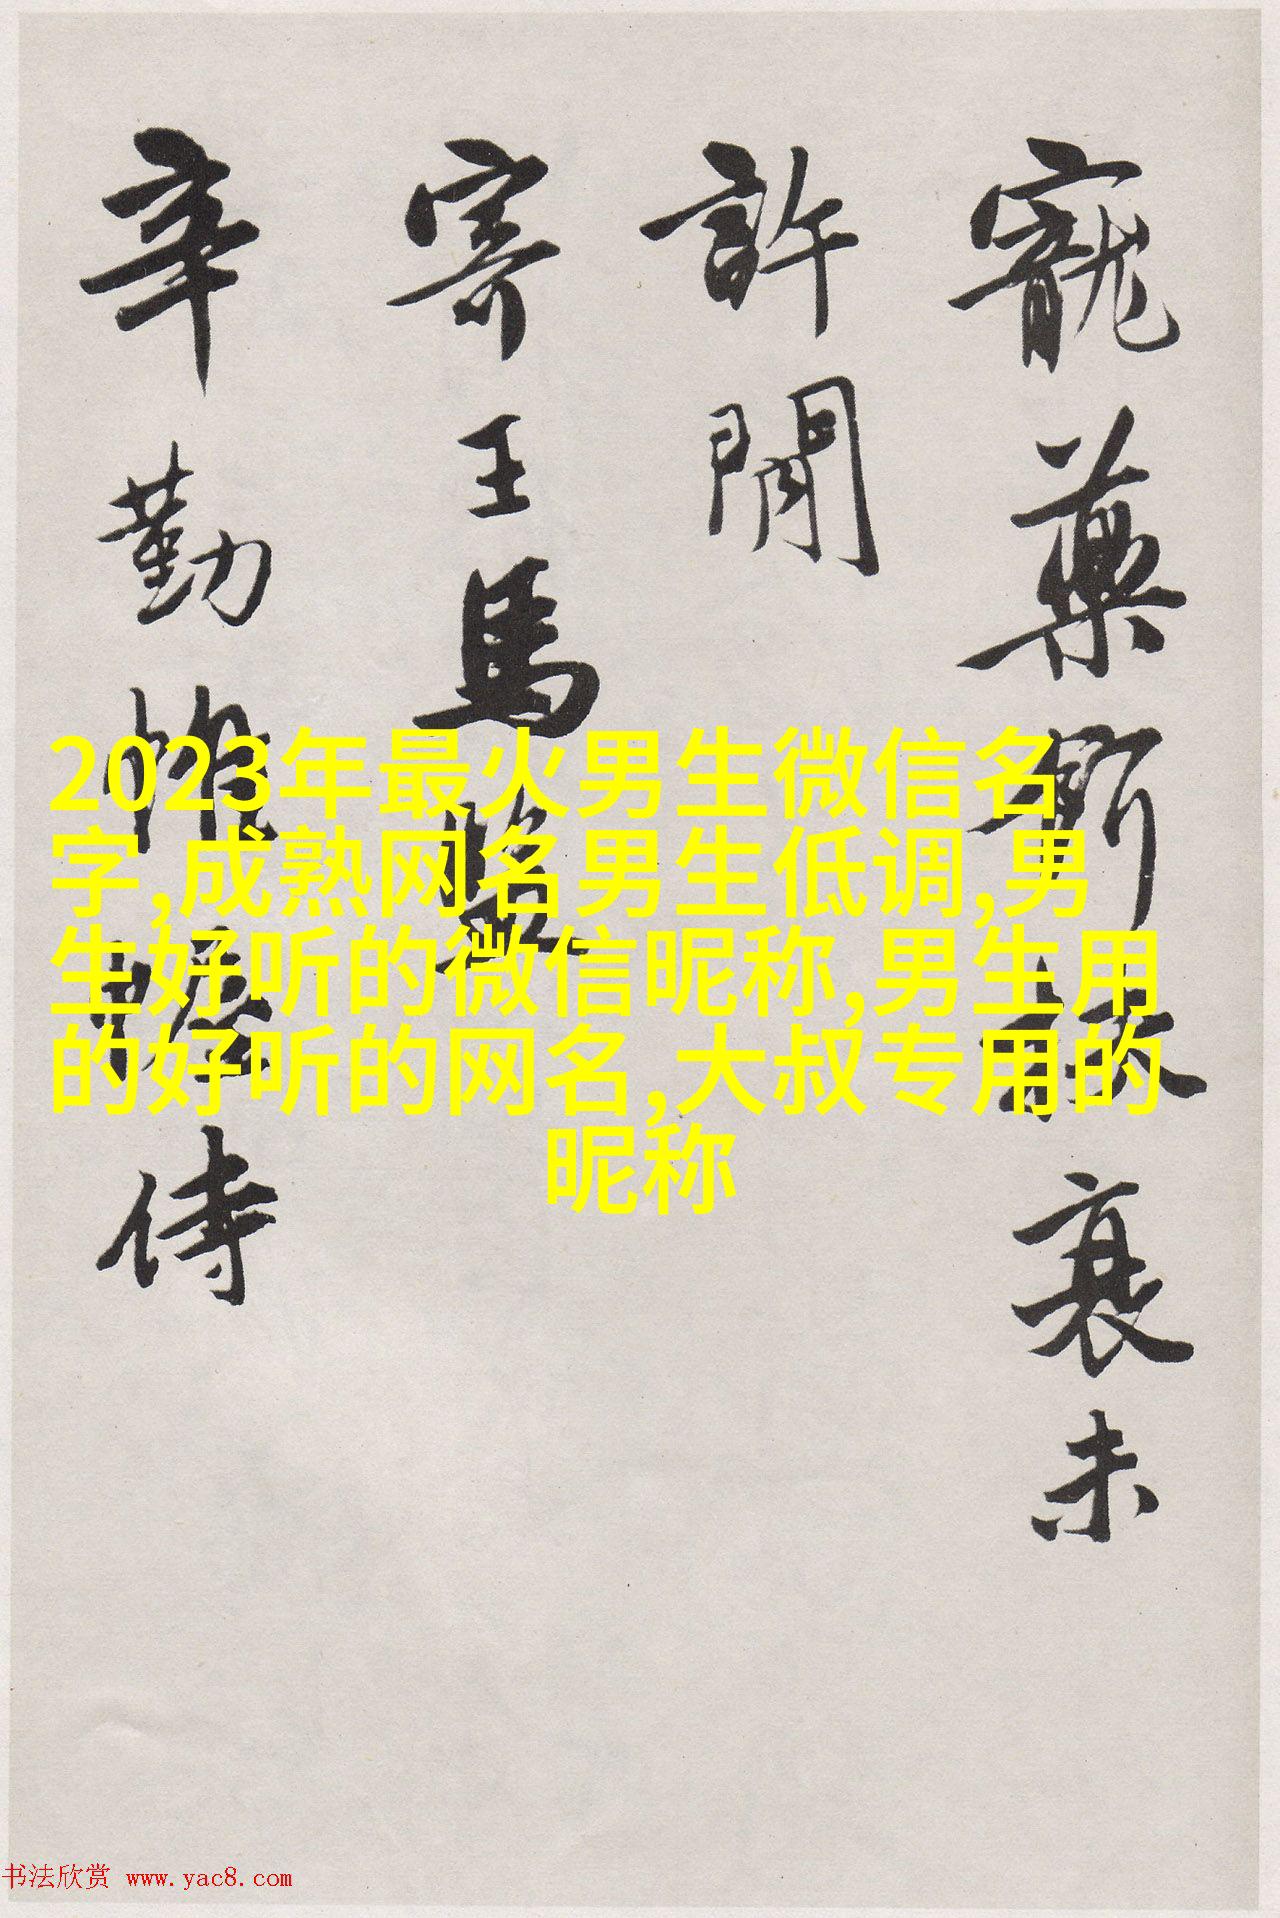 寵藥衰未
許閒
寄王馬監
辛勤帷幄侍
2023年最火男生微信名
字,成熟网名男生低调,男
生好听的微信昵称,男生用
的好听的网名,大叔专用的
昵称
书法欣赏 www.yac8.com